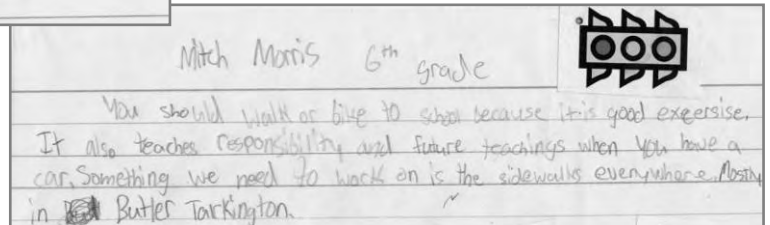 Mitch Morris 6th grade
You should walk or bike to school because it is good exeersise.
It also teaches responsibility and future teachings when you have a
car. Something we need to work on is the sidewalks everywhere. Mostly
in Butler Tarkington.